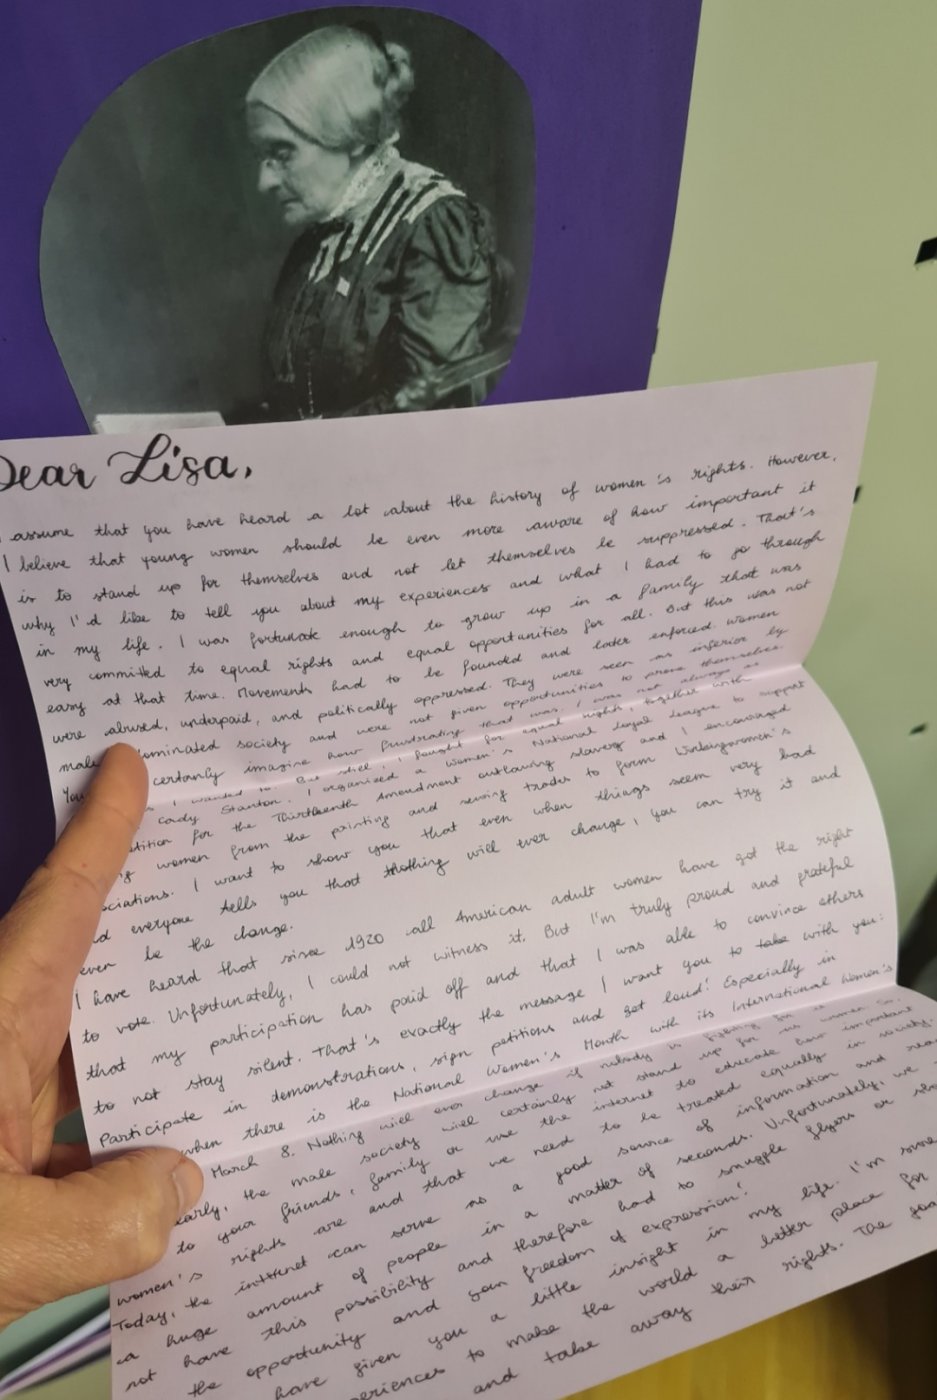 Dear Lisa,
assume that you have heard a lot about the history of women's rights. However,
I believe that young women should be even more aware of how important it
is to stand up for themselves and not let themselves be suppressed. That's
why I'd like to tell you about my experiences and what I had to go through
in my life. I was fortunate enough to grow up in a family that was
very committed to equal rights and equal opportunities for all. But this was not
easy at that time. Movements had to be founded and later enforced. Women
were abused, underpaid, and politically oppressed. They were seen as inferior by
male dominated society and were not given opportunities to prove themselves.
You certainly imagine how frustrating that was. I was not always as
I wanted to. But still, I fought for equal rights, together with
Cady Stanton. I organized a Women's National Loyal League to support
petition for the Thirteenth Amendment outlawing slavery and I encouraged
women from the printing and sewing trades to form Workingwomen's
ociations. I want to show you that even when things seem very bad
nd everyone tells you that nothing will ever change, you can try it and
even be the change.
I have heard that since 1920 all American adult women have got the right
to vote. Unfortunately, I could not witness it. But I'm truly proud and grateful
that my participation has paid off and that I was able to convince others
to not stay silent. That's exactly the message I want you to take with you:
Participate in demonstrations, sign petitions and get loud! Especially in
when there is the National Women's Month with its International Women's
March 8. Nothing will ever change if nobody is fighting for it.
early, the male society will certainly not stand up for us women. So,
to your friends, family or use the internet to educate how important
women's rights are and that we need to be treated equally in society.
Today, the internet can serve as a good source of information and rea
a huge amount of people in a matter of seconds. Unfortunately, we
not have this possibility and therefore had to smuggle flyers or
the opportunity and your freedom of expression!
have given you a little insight in my life. I'm
periences to make the world a better place for
and take away their rights. The